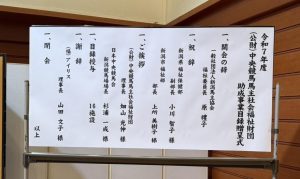 令和7年度
(公財)中央競馬馬主社会福祉財団
助成事業目録贈呈式
一、開会の辞
一般社団法人新潟馬主協会
福祉委員長 原 禮子様
一、祝辞
新潟県福祉保健部
副部長 小川 智子様
新潟市福祉部
部長 上所 美樹子様
一、ご挨拶
(公財)中央競馬馬主社会福祉財団
理事長 畑山 光伸様
日本中央競馬会
新潟競馬場長 杉浦 一成様
一、目録授与 16施設
一、謝辞
(福)アイリス
理事長 山田 文子様
一、閉会
以上